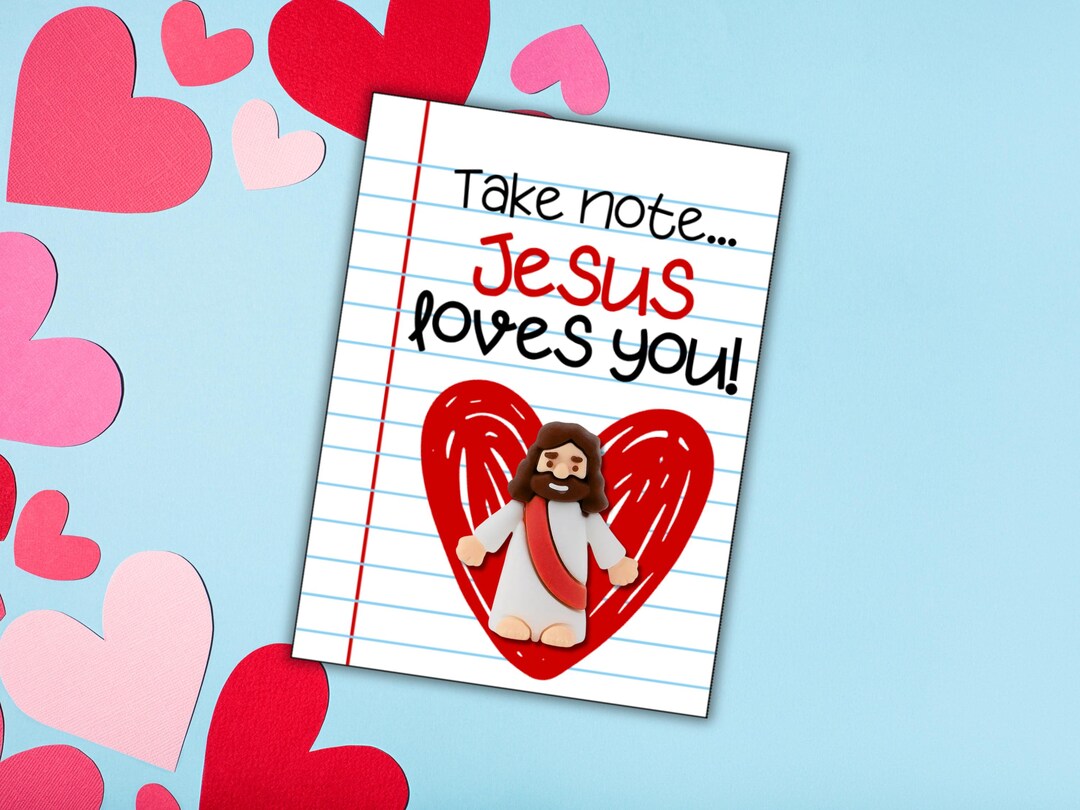 Take note...
Jesus
loves you!